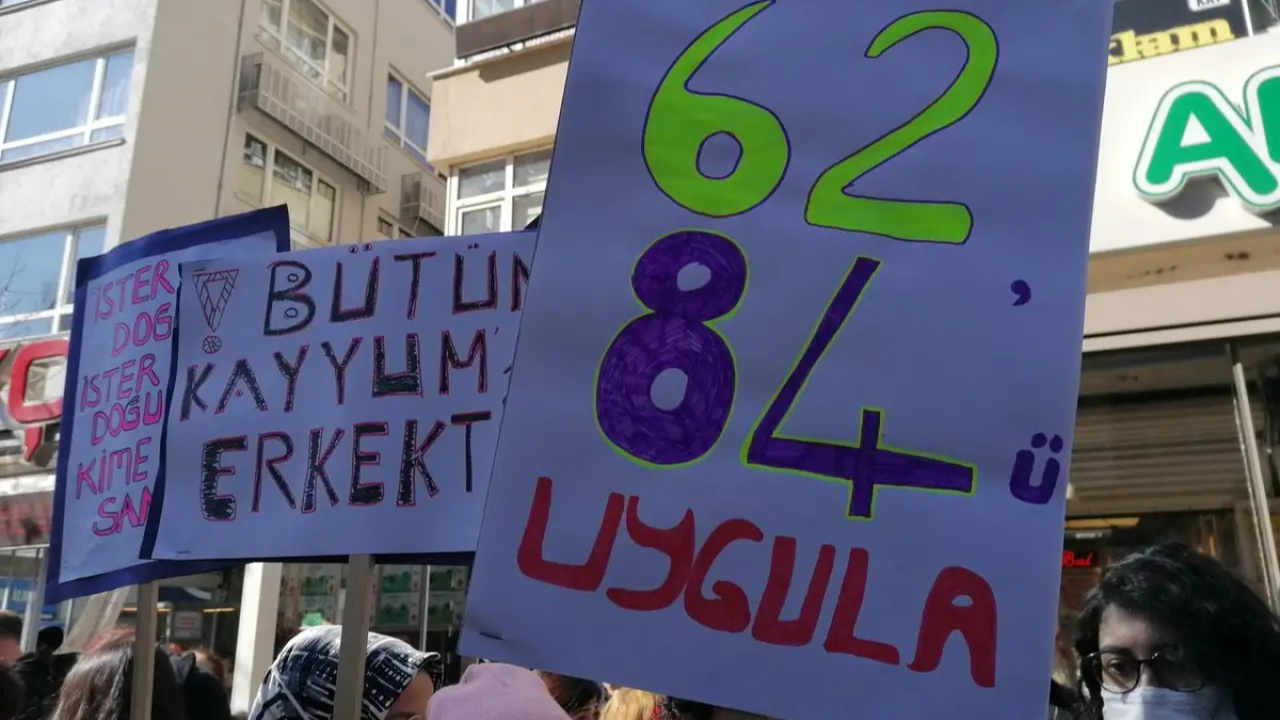 İSTER
DOĞ
İSTER
DOĞU
KİME
SAN
BÜTÜN
KAYYUM
ERKEKT
62
84'ü
UYGULA
klam
A